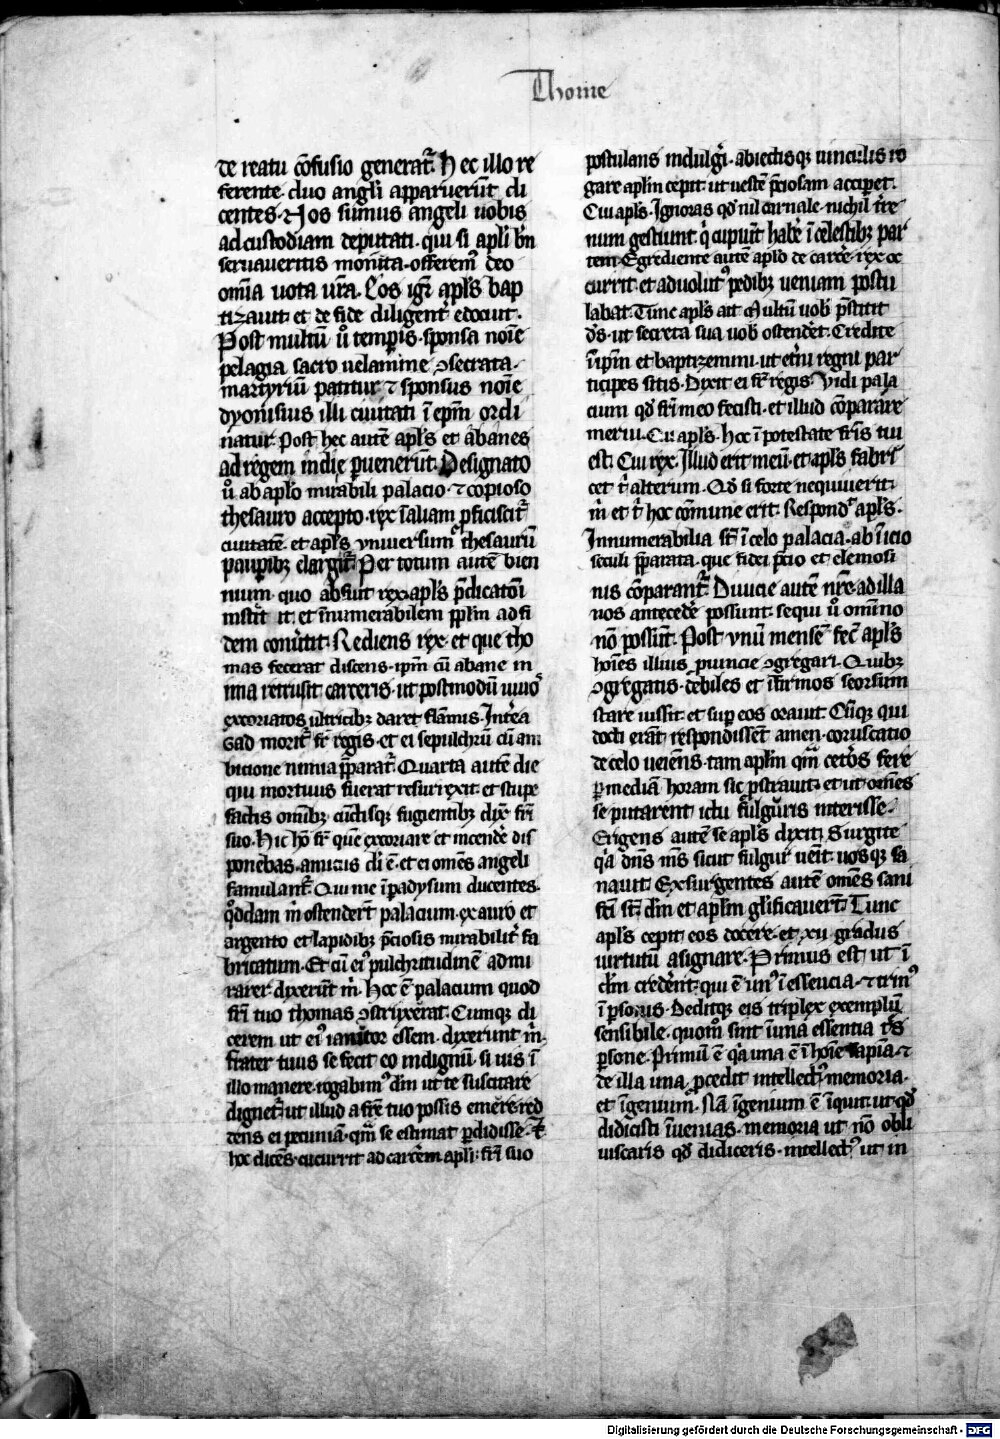 Thome
de reatu cōfusio generat᷑. Hec illo re
ferente. duo angl̄i apparuerūt di
centes. Nos sumus angeli uobis
ad custodiam deputati. qui si apl̄i bn̄
seruaueritis monita. offerem᷒ deo
om̄ia uota vr̄a. Eos igr̄ apl̄s bap
tizauit et de fide diligent᷑ edocuit.
Post multū u͛o tempis. sponsa noīe
pelagia sacro uelamine ꝯsecrata.
martyriū patitur ⁊ sponsus noīe
dyonisius illi ciuitati ī ep̄m ordi
natur. Post hec autē apl̄s et abanes
ad regem indie puenerūt. Designato
u͛o ab apl̄o mirabili palacio. ⁊ copioso
thesauro accepto. rex ī aliam ꝓficiscit᷑
ciuitatē. et apl̄s vniuersum thesaurū
paupibꝫ elargit᷑. Per totum autē bien
nium. quo absuit rex apl̄s p̄dicatōi
instit it. et īnumerabilem ppl̄m ad fi
dem conu͛tit. Rediens rex. et que tho
mas fecerat discens. ip̄m cū abane in
ima retrusit carceris. ut postmodū uiuos
excoriatos ultricibꝫ daret flāmis. Int͛ea
Gad morit᷑ fr̄ regis. et ei sepulchrū cū am
bicione nimia p̄parat᷑. Quarta autē die
qui mortuus fuerat resurrexit. et stupe
factis omībꝫ. cūctisqꝫ fugientibꝫ dix̄ fr̄i
suo. Hic hō fr̄ quē excoriare et incende͛ dis
ponebas. amicus di ē. et ei omēs angeli
famulant᷑. Qui me ī padysum ducentes.
q͛ddam m̄ ostender̄t palacium. ex auro et
argento et lapidibꝫ p̄ciosis mirabilit͛ fa
bricatum. Et cū ei᷒ pulchritudinē admi
rarer dixerūt m̄. Hoc ē palacium quod
fr̄i tuo thomas ꝯstruxerat. Cumqꝫ di
cerem ut ei᷒ ianitor essem. dixerunt m̄.
frater tuus se fecit eo indignū. si uis ī
illo manere. rogabim᷒ dm̄ ut te suscitare
dignet᷑. ut illud a fr̄e tuo possis emere. red
dens ei pecuniā. qm̄ se estimat perdidisse. Et
hoc dicēs. cucurrit ad carcerem apl̄i. fr̄i suo
postulans indulgi͛. abiectisqꝫ uinculis ro
gare apl̄m cepit. ut uestē p̄ciosam accip͛et.
Cui apl̄s. Ignoras qd̄ nil carnale. nichil t͛re
num gestiunt. q̄ cupiūt habe͛ ī celestibꝫ par
tem. Egrediente autē apl̄o de carcē. rex oc
currit. et aduolut᷒ pedibꝫ ueniam postu
labat. Tunc apl̄s ait Multū uob̄ p̄stitit
dr̄s. ut secreta sua uob̄ ostende͛t. Credite
ī ip̄m et baptizemini. ut et͛ni regni par
ticipes sitis. Dixit ei fr̄ regis. Vidi pala
cium qd̄ fr̄i meo fecisti. et illud cōparare
merui. Cui apl̄s. Hoc ī potestate fr̄is tui
est. Cui rex. Illud erit meū. et apl̄s fabri
cet t̄ alterum. Qd̄ si forte nequiuerit.
m̄ et t̄ hoc cōmune erit. Respond᷑ apl̄s.
Innumerabilia st̄ ī celo palacia. ab īicio
seculi p̄parata. que fidei p̄cio et elemosi
nis cōparant᷑. Diuicie autē nr̄e. ad illa
uos antecede͛ possunt. sequi u͛o omīno
nō possūt. Post vnū mensē fec̄ apl̄s
hoīes illius puincie ꝯgregari. Quibꝫ
ꝯgregatis. debiles et īfirmos seorsum
stare iussit. et sup eos orauit. Cūqꝫ qui
docti erāt respondissēt amen. coruscatio
de celo ueiēns. tam apl̄m qm̄ cet͛os fere
p mediā horam sic pstrauit. et ut omēs
se putarent ictu fulguris interisse.
Erigens autē se apl̄s dixit. Surgite
q̄a dn̄s ms̄ sicut fulgur uēit. uosqꝫ sa
nauit. Exsurgentes autē omēs sani
scti st̄. dm̄ et apl̄m gl̄ificauer̄t. Tunc
apl̄s cepit eos docere. et xii gradus
uirtutū asignare. Primus est ut ī
dm̄ crede͛nt. qui ē un᷒ ī essencia. ⁊ trin᷒
ī psonis. Deditqꝫ eis triplex exemplū
sensibile. quom̄ sint ī una essentia trs̄
psone. Primū ē q̄a una ē ī hoīe sapīa. ⁊
de illa una pcedit intellect᷒. memoria.
et īgenium. Nā īgenium ē īquit. ut qd̄
didicisti īuenias. memoria ut nō obli
uiscaris qd̄ didiceris. intellect᷒ ut in
Digitalisierung gefördert durch die Deutsche Forschungsgemeinschaft - DFG